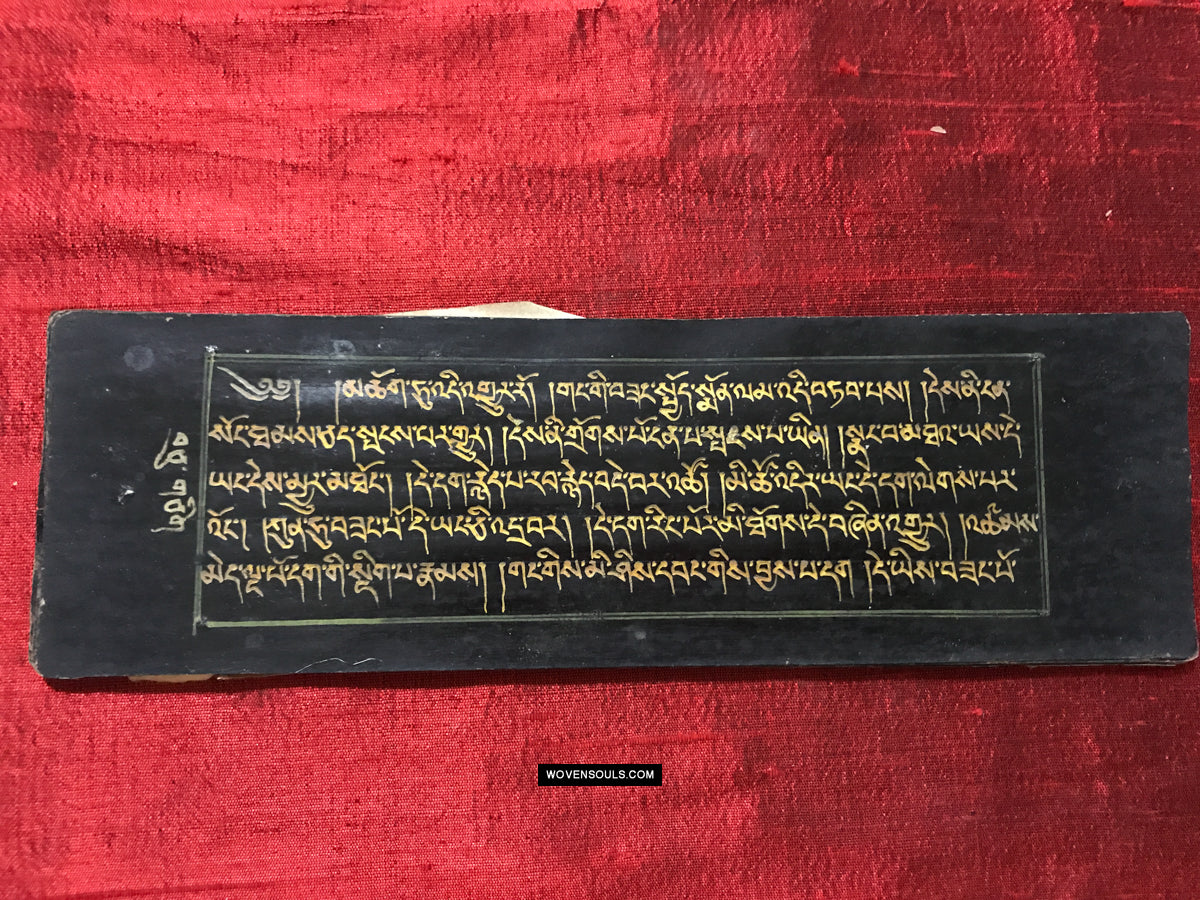 ༄༅། །མཆོག་ཏུ་འདི་འགྱུར་རོ། །གང་གི་བཟང་སྤྱོད་སྨོན་ལམ་འདི་བཏབ་པས། །དེས་ནི་ངན་
སོང་ཐམས་ཅད་སྤངས་པར་གྱུར། །དེས་ནི་གྲོགས་པོ་ངན་པ་སྤངས་པ་ཡིན། །སྣང་བ་མཐའ་ཡས་དེ་
ཡང་དེས་མྱུར་མཐོང་། །དེ་དག་རྙེད་པ་རབ་རྙེད་བདེ་བར་འཚོ། །མི་ཚེ་འདིར་ཡང་དེ་དག་ལེགས་པར་
འོང་། །ཀུན་ཏུ་བཟང་པོ་དེ་ཡང་ཅི་འདྲ་བར། །དེ་དག་རིང་པོར་མི་ཐོགས་དེ་བཞིན་འགྱུར། །འཚམས་
མེད་ལྔ་པོ་དག་གི་སྡིག་པ་རྣམས། །གང་གིས་མི་ཤེས་དབང་གིས་བྱས་པ་དག །དེ་ཡིས་བཟང་པོ་
WOVENSOULS.COM